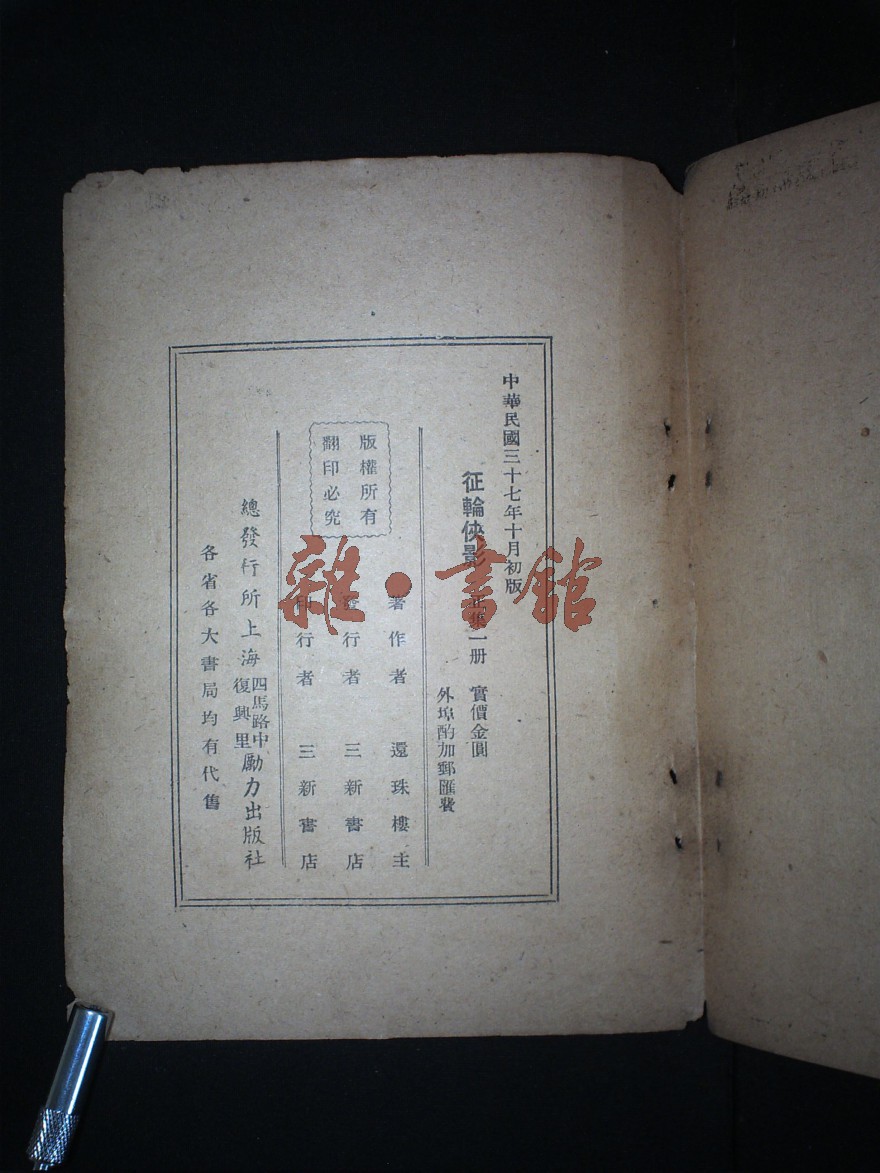 中華民國三十七年十月初版
征輪俠影 正集一册 實價金圓
外埠酌加郵匯費
著作者 還珠樓主
發行者 三新書店
印行者 三新書店
版權所有
翻印必究
總發行所上海四馬路中復興里勵力出版社
各省各大書局均有代售
雜·書館